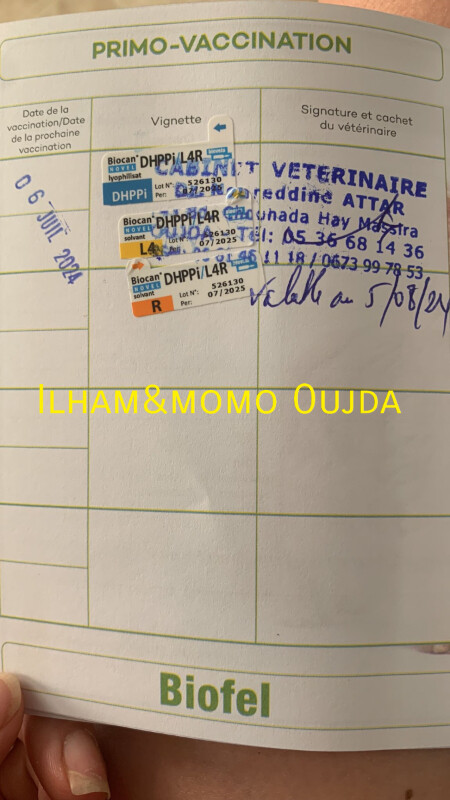 PRIMO-VACCINATION
Date de la vaccination/Date de la prochaine vaccination
Vignette
Signature et cachet du vétérinaire
06 JUIL 2024
Biocan NOVEL DHPPi/L4R
lyophilisat
DHPPi
Lot N°: 526130
Per: 07/2025
Biocan NOVEL DHPPi/L4R
solvant
L4
07/2025
Biocan NOVEL DHPPi/L4R
solvant
R
Lot N°: 526130
Per: 07/2025
CABINET VETERINAIRE
Noreddine ATTAR
Chouhada Hay Massira
OUJDA Tél: 05 36 68 14 36
11 18 / 0673 99 78 53
Valable au 5/08/24
ILHAM&MOMO OUJDA
Biofel